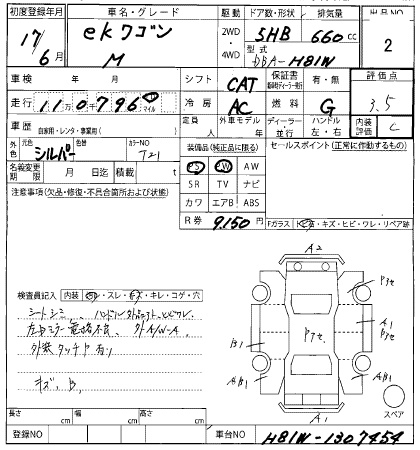 初度登録年月 車名・グレード 駆動 ドア数・形状 排気量 出品NO
17年 6月 ekワゴン M 2WD 4WD 5HB 660cc 2
型式 DBA-H81W
車検 年 月 シフト CAT 保証書 有・無 評価点
走行 110796 マイル 冷房 AC 燃料 G 3.5
車歴 自家用・レンタ・事業用( ) 定員 人 外車モデル 年 ディーラー・並行 ハンドル 左・右 内装評価 C
外色 元色 シルバー 色替 カラーNO A21 装備品(純正品に限る) セールスポイント(正常に作動するもの)
名義変更期限 月 日迄 積載 t PS PW AW
注意事項(欠品・修復・不具合箇所および状態) SR TV ナビ
カワ エアB ABS
R券 9,150円 Fガラス キズ・ヒビ・ワレ・リペア跡
A2
検査員記入 内装 スレ キレ・コゲ・穴
シートシミ、
左ドアミラー電格不良、 外A/W-A
外装タッチP有り
キズ、B、
Pアセ
A1
Pアセ
B1
AB1
AB1
スペア
A1
長さ cm 幅 cm 高さ cm
登録NO 車台NO H81W-1307454